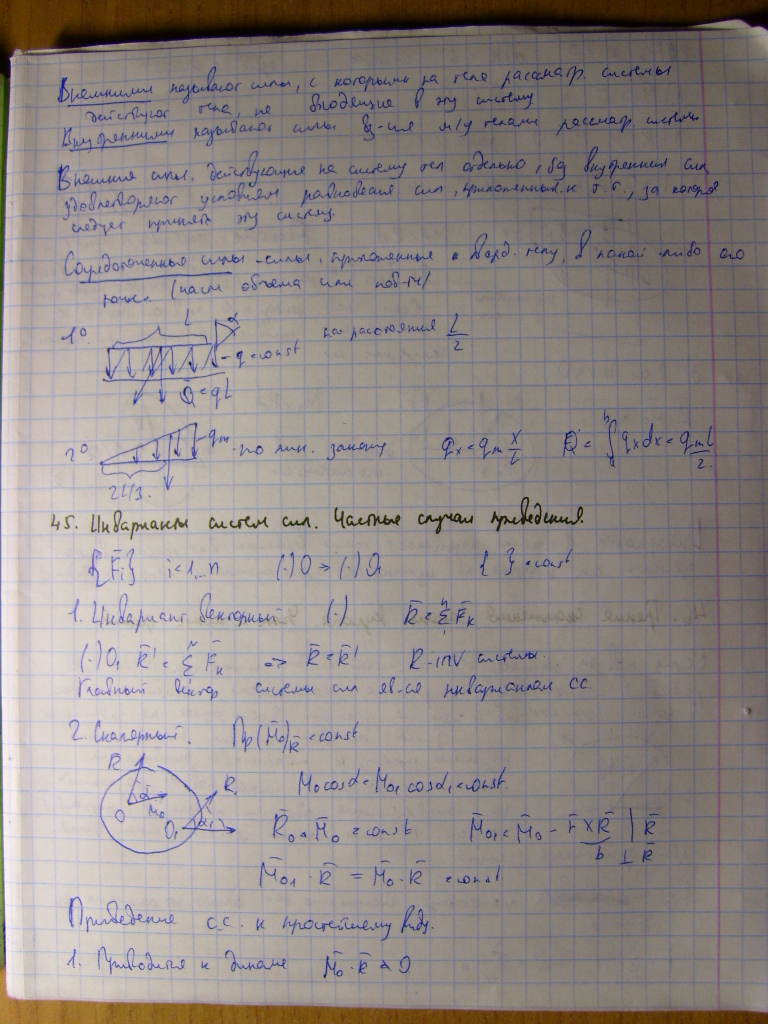 Внешними называют силы, с которыми на тела рассматр. системы
действуют тела, не входящие в эту систему
Внутренними называют силы вз-ия м/у телами рассматр. системы
Внешние силы, действующие на систему тел отдельно, без внутренних сил
удовлетворяют условиям равновесия сил, приложенных к т.т., за которое
следует принять эту систему.
Сосредоточенные силы - силы, приложенные к тверд. телу в какой либо его
точке (части объема или пов-ти)
1° L α q = const на расстоянии L/2
Q̄ = qL
2° qm - по лин. закону qx = qm x/L Q = ∫ qx dx = qm L/2
2L/3
45. Инварианты систем сил. Частные случаи приведения.
{F̄i} i = 1..n (·)O → (·)O1 { } = const
1. Инвариант векторный (·) R̄ = Σ F̄к
(·)O1 R̄' = Σ F̄к => R̄ = R̄' R - inv системы.
Главный вектор системы сил яв-ся инвариантом СС
2. Скалярный. Пр(M̄o)R̄ = const
R̄ α M̄o O R̄ O1 α1
Mo cosα = Mo1 cosα1 = const
R̄o · M̄o = const M̄o1 = M̄o - r̄ × R̄ | R̄
b ⊥ R̄
M̄o1 · R̄ = M̄o · R̄ = const
Приведение с.с. к простейшему виду.
1. Приводится к динаме M̄o · R̄ ≠ 0